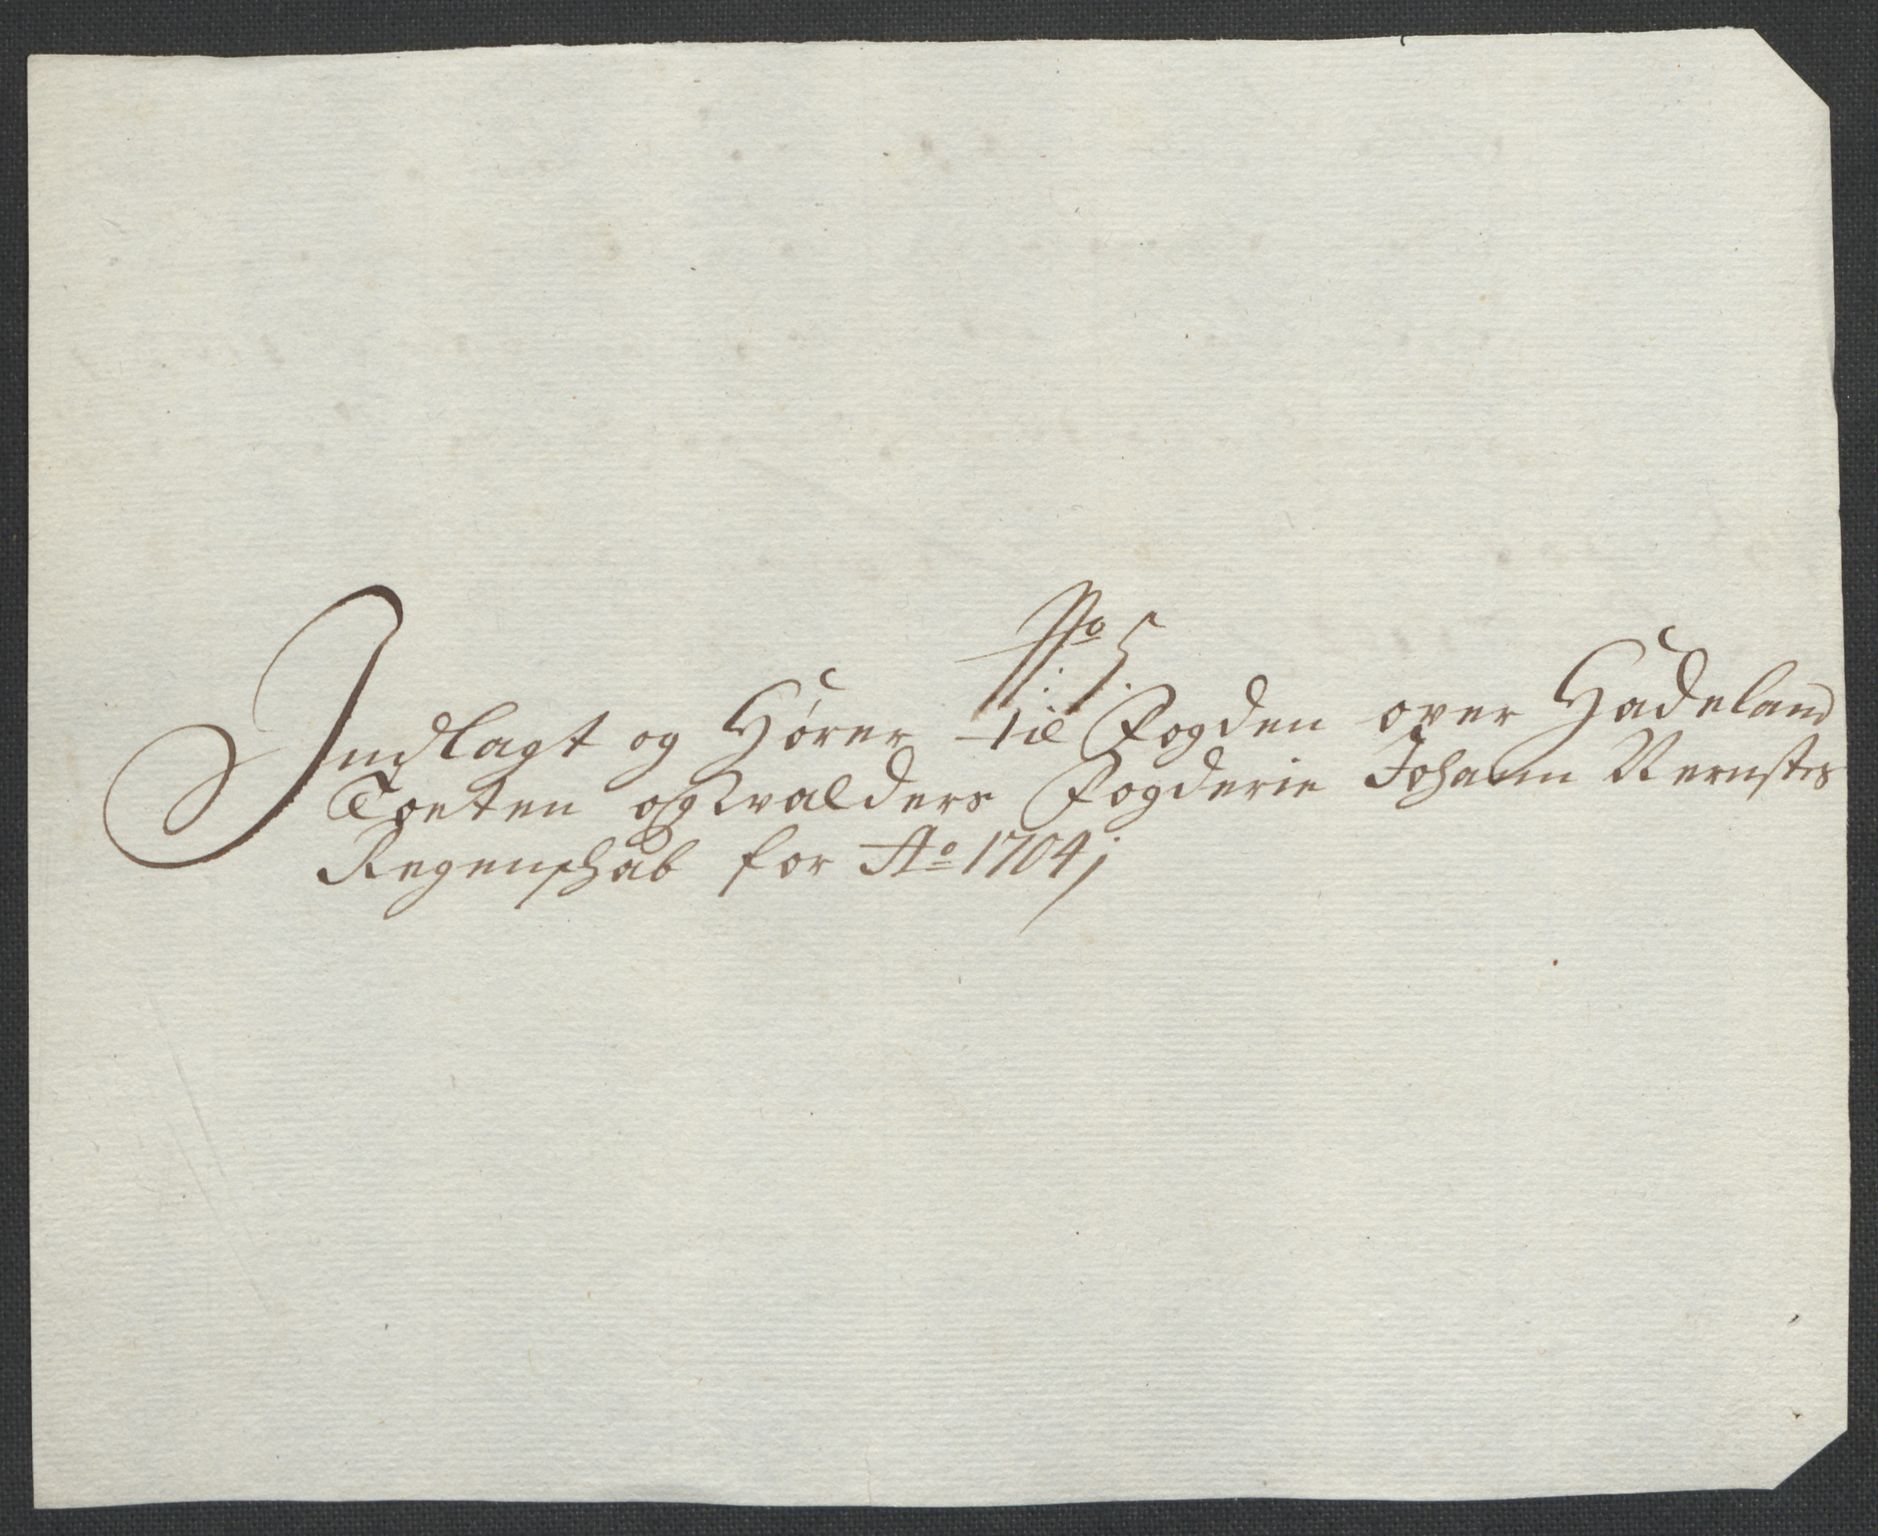 No 5.
Indlagt og Hører til Fogden over Hadeland
Toeten og Walders Fogderie Johann Rernstes
Regenschab for Ao 1704